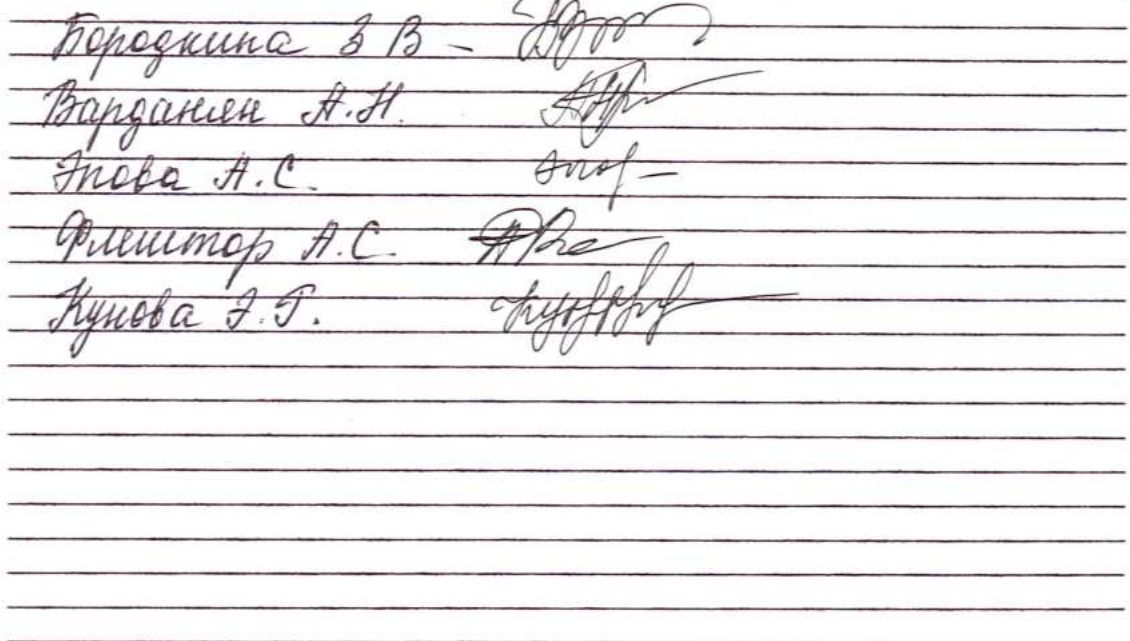 Бородкина З В -
Варданян А.Н.
Эпова А.С.
Флештор А.С.
Кунова Э.Г.